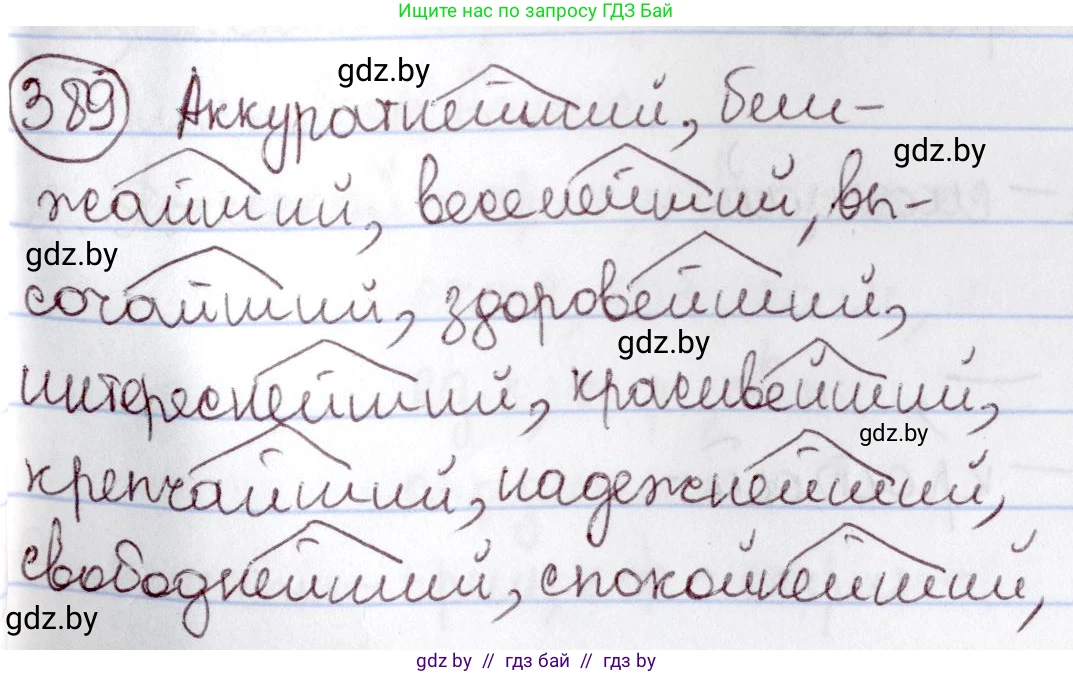 Ищите нас по запросу ГДЗ Бай
389 Аккуратнейший, бли-
gdz.by
gdz.by
жайший, веселейший, вы-
gdz.by
сочайший, здоровейший,
gdz.by
интереснейший, красивейший,
gdz.by
крепчайший, надежнейший,
свободнейший, спокойнейший,
gdz.by
gdz by // гдз бай // гдз by